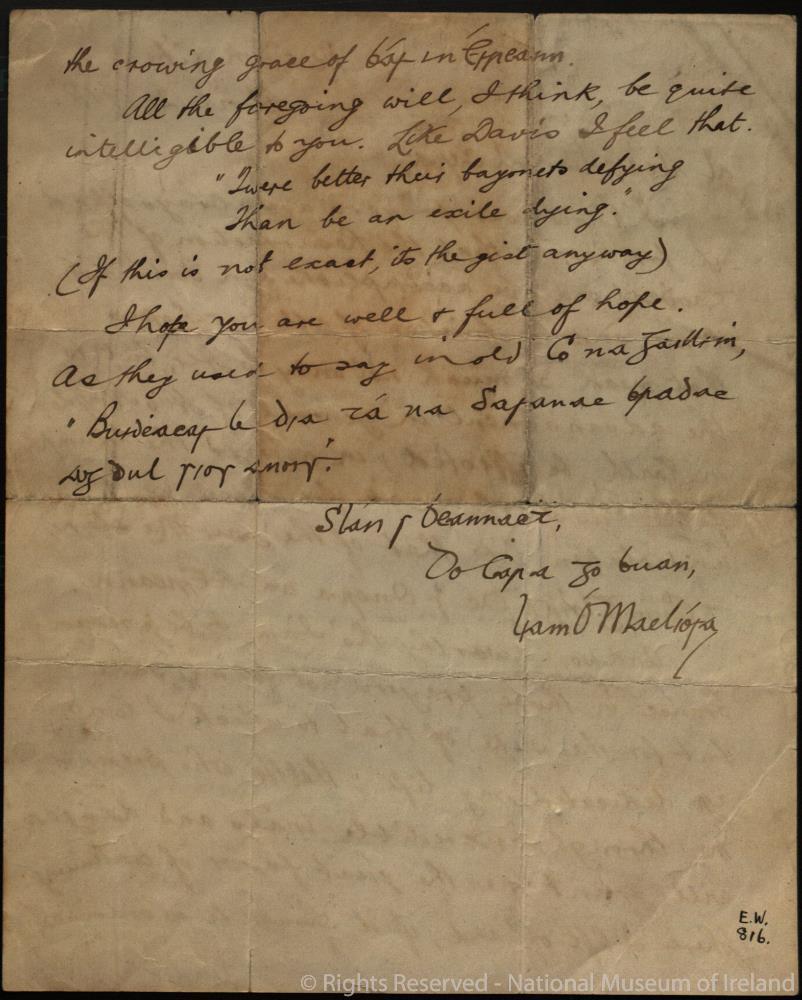 the crowing grace of bás in Éireann.
All the foregoing will, I think, be quite
intelligible to you. Like Davis I feel that.
"Twere better their bayonets defying
Than be an exile dying."
(If this is not exact, its the gist anyway)
I hope you are well & full of hope.
As they used to say in old Co na Gaillimhe,
"Buideacas le Dia tá na Sasanac bradac
ag dul síos anois".
Slán ⁊ Beannact,
Do Cara go buan,
Liam Ó Maelíosa
E.W.
816.
© Rights Reserved - National Museum of Ireland